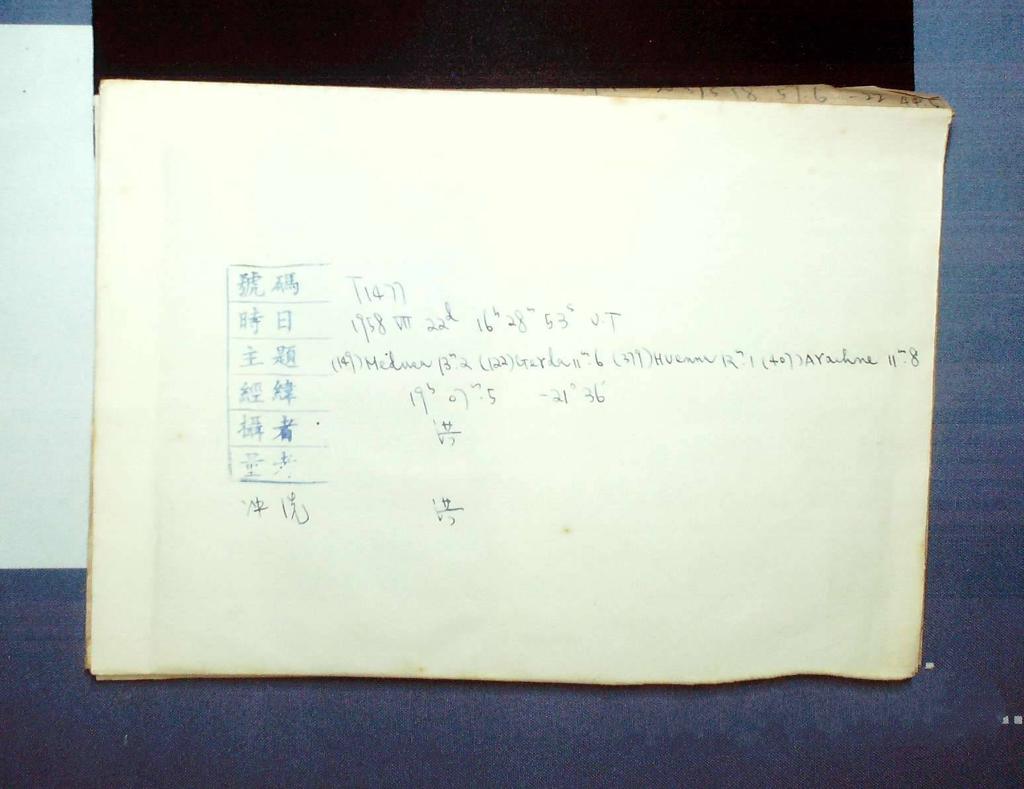 號碼 T1477
時日 1958 VII 22d 16h 28m 53s U.T
主題 (149) Medusa 13m.2 (122) Gerda 11m.6 (379) Huenna 12m.1 (407) Arachne 11m.8
經緯 19h 07m.5 -21° 36'
攝者 洪
量者
冲洗 洪